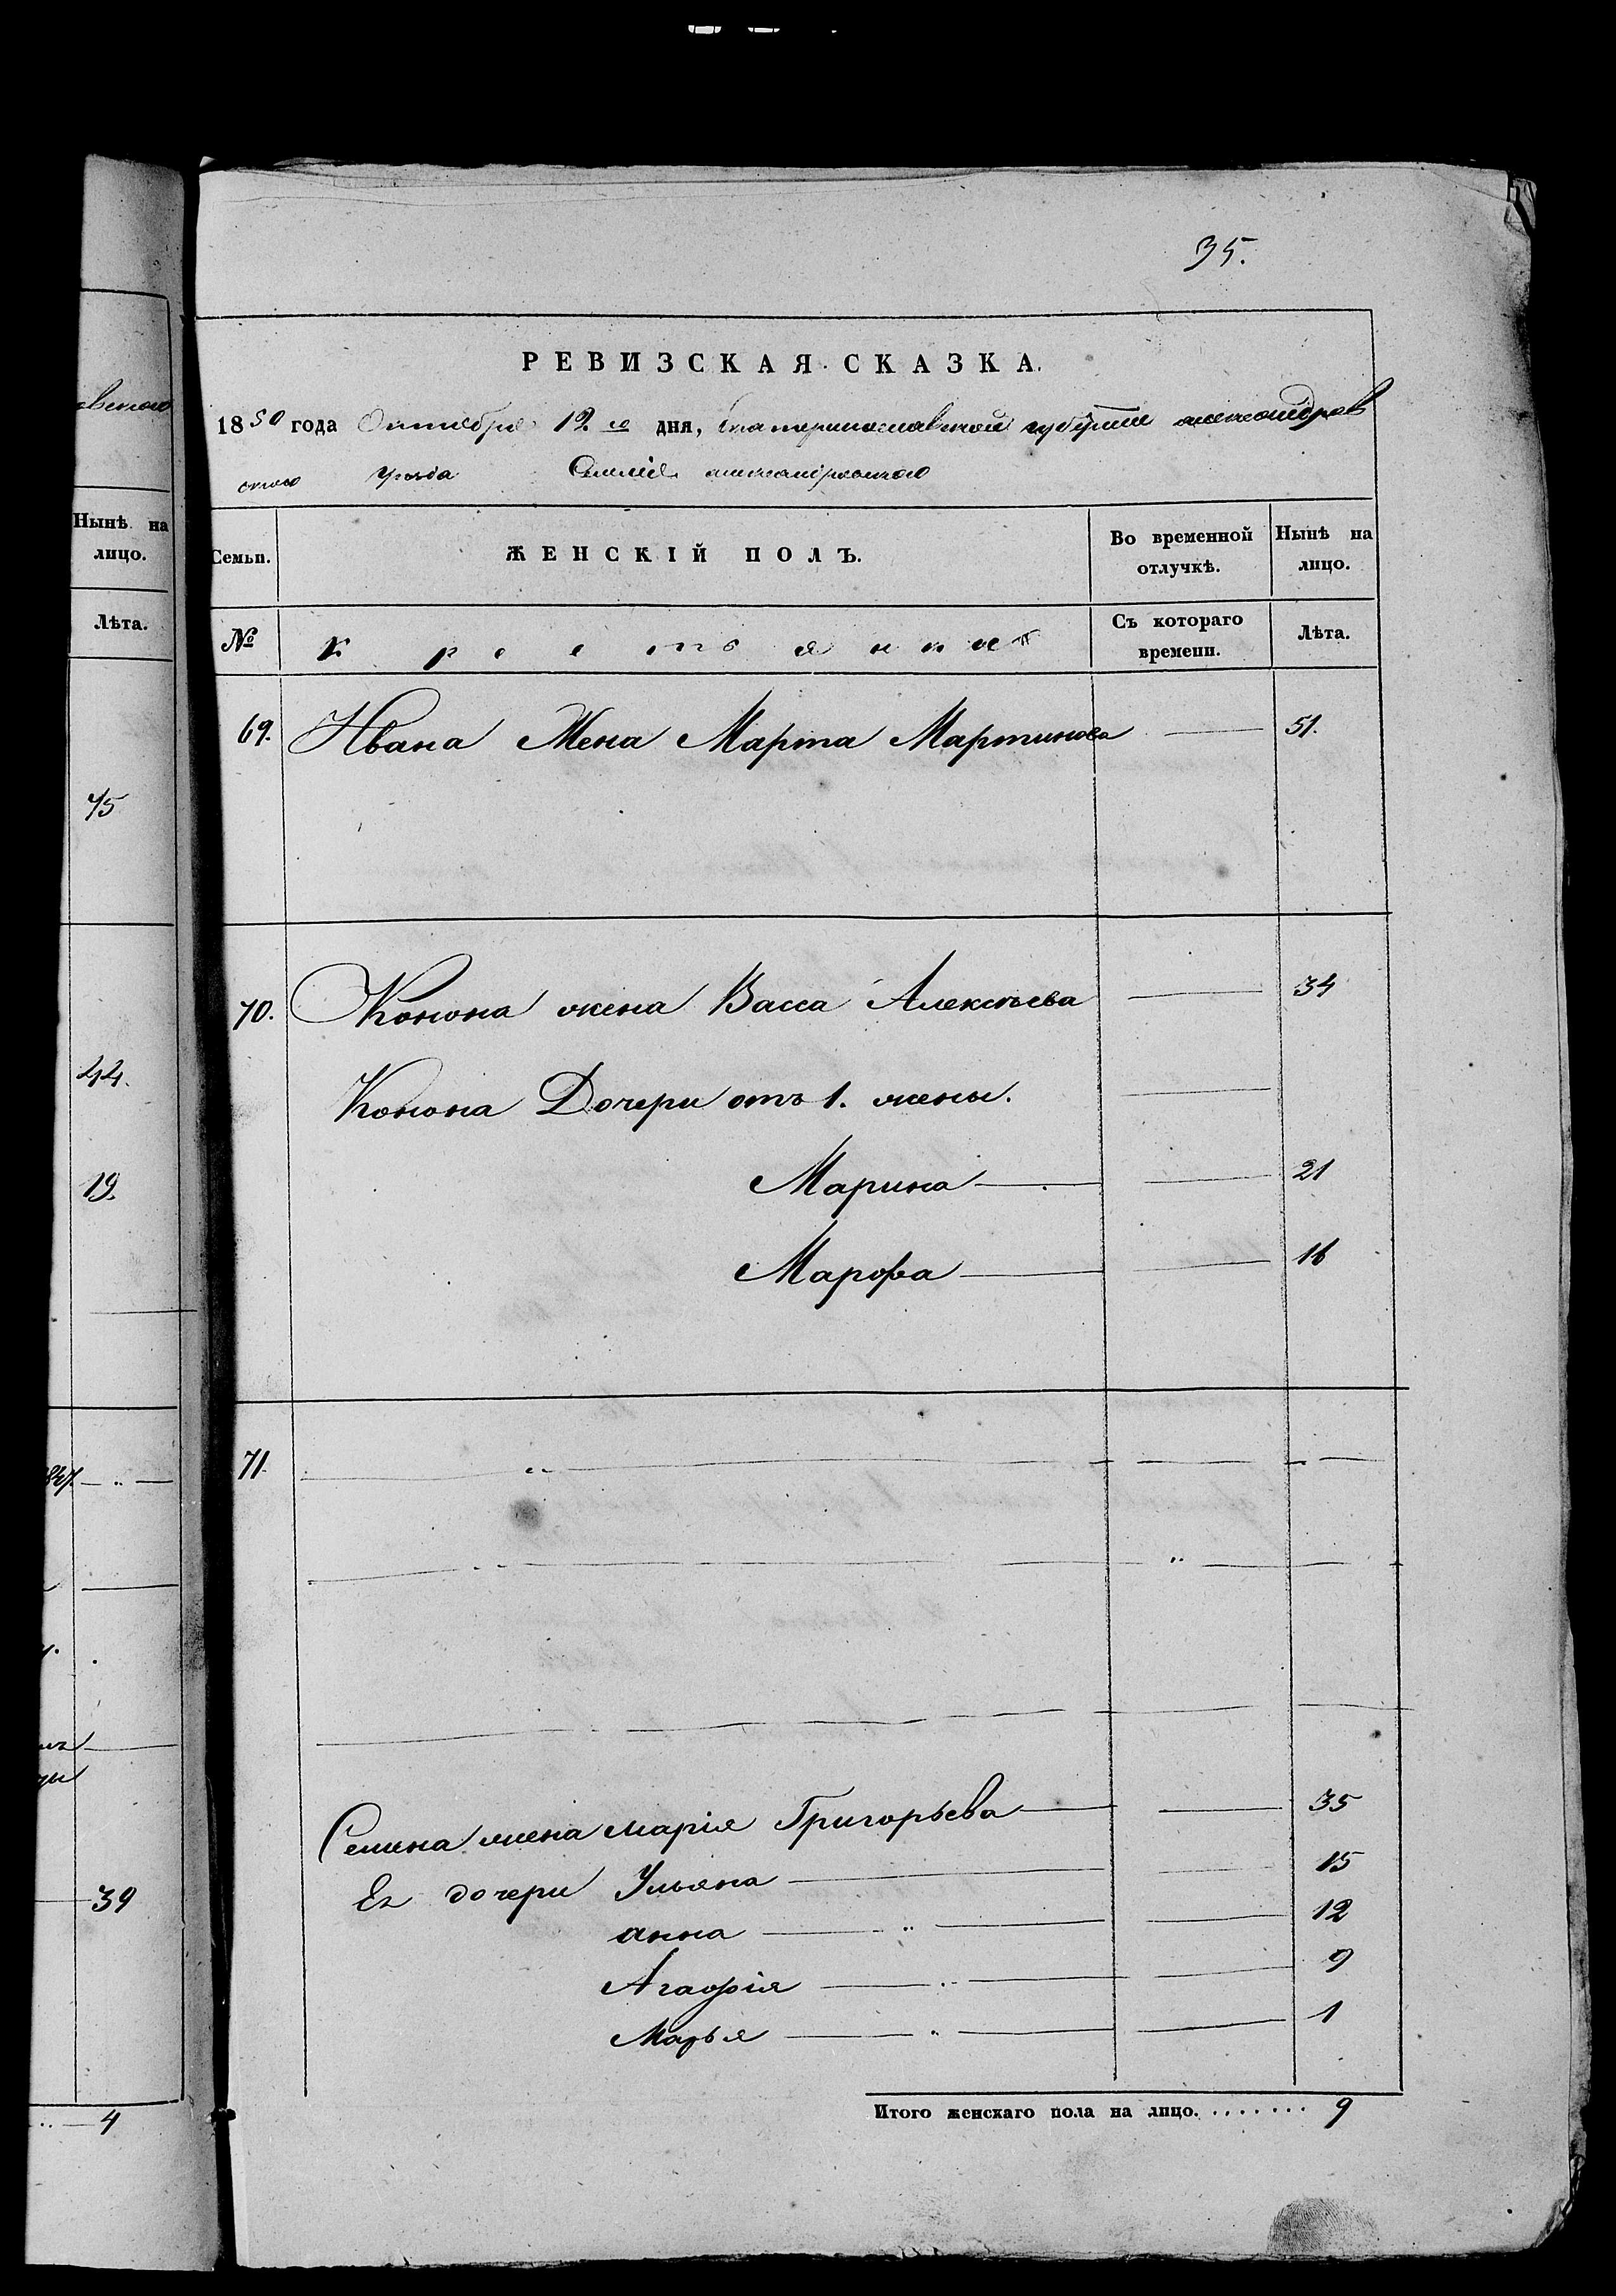 35.
РЕВИЗСКАЯ СКАЗКА.
1850 года Октября 12го дня, Екатеринославской губернiи александров
ского уезда Селенiе александровского
вского
Нынѣ на лицо.
Лѣта.
Семьи.
ЖЕНСКІЙ ПОЛЪ.
Во временной отлучкѣ.
Нынѣ на лицо.
№
крестьянкѣ
Съ котораго времени.
Лѣта.
69. Ивана Жена Марта Мартинова 51.
45
70. Конона жена Васса Алексѣева 34
Конона Дочери отъ 1. жены.
44.
Марина 21
19.
Марфа 16
71.
847.
Семина жена марія Григорьева 35
Ея дочери Ульяна 15
39
анна 12
Агафія 9
Марья 1
Итого женскаго пола на лицо. . . . . . . . 9
4